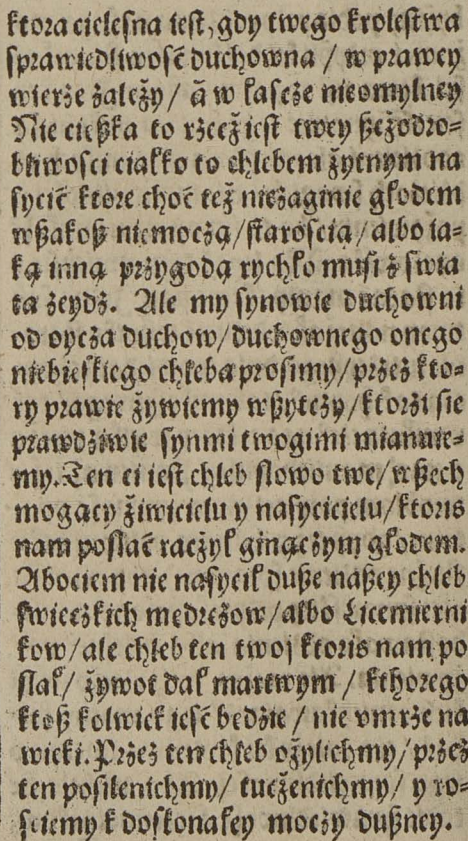 ktora cielesna iest, gdy twego krolestwa
sprawiedliwosć duchowna / w prawey
wierże żależy / ā w łasċże nieomylney
Nie cießka to rżecż iest twey ßcżodro=
bliwosci ciałko to chlebem żytnym na
sycić ktore choć też nieżaginie głodem
wßakoß niemocżą / staroscią / albo ia=
ką inną przygodą rychło musi ż swia
ta żeydż. Ale my synowie duchowni
od oycża duchow / duchownego onego
niebieskiego chleba prosimy / przeż kto=
ry prawie żywiemy wßytcży / ktorżi sie
prawdżiwie synmi twogimi mianuie=
my. Ten ci iest chleb slowo twe / wßech
mogący żiwicielu y nasycicielu / ktoris
nam poslać racżył ginącżym głodem.
Abociem nie nasycił duße naßey chleb
swieczkich medrcżow / albo Licemierni
kow / ale chleb ten twoj ktoris nam po
slał / żywot dał martwym / kthorego
ktoß kolwiek iesć bedżie / nie vmrże na
wieki. Przeż ten chleb ożylichmy / przeż
ten posilenichmy / tucżenichmy / y ro=
sciemy k doskonałey mocży dußney.